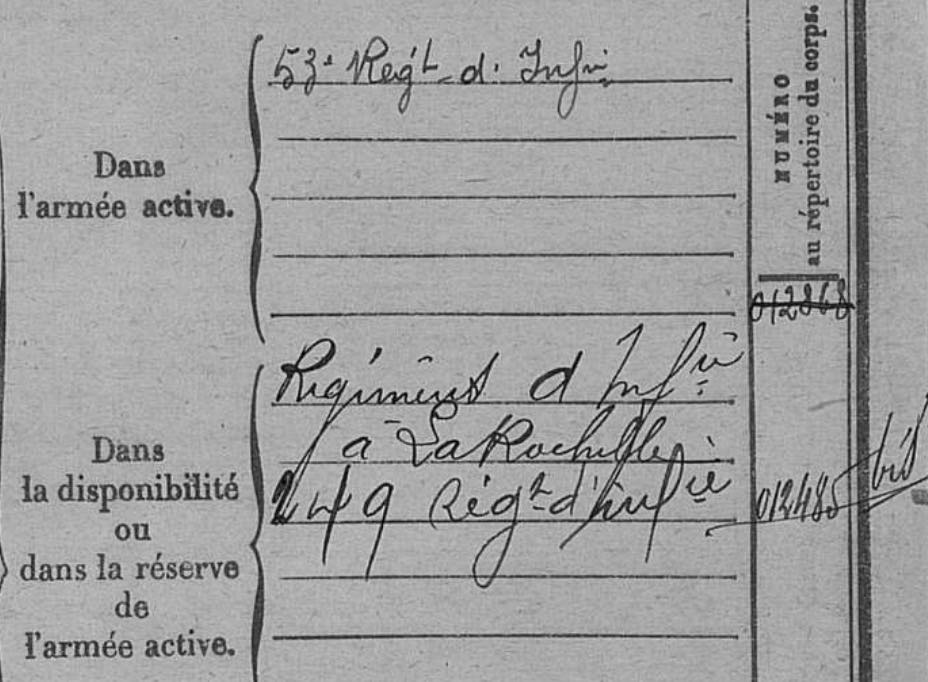 Dans
l'armée active.
53e Regt d' Infie
NUMÉRO
au répertoire du corps.
012868
Dans
la disponibilité
ou
dans la réserve
de
l'armée active.
Régiment d Infie
à La Rochelle
249 Régt d'infie
012485 bis